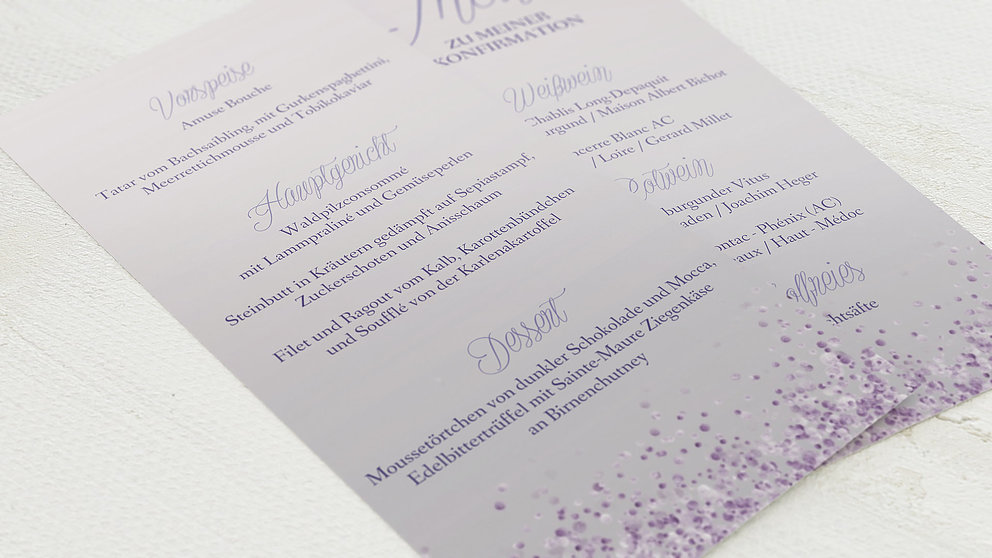 Vorspeise
Amuse Bouche
Tatar vom Bachsaibling, mit Gurkenspaghettini,
Meerrettichmousse und Tobikokaviar
Hauptgericht
Waldpilzconsommé
mit Lammpraliné und Gemüseperlen
Steinbutt in Kräutern gedämpft auf Sepiastampf,
Zuckerschoten und Anisschaum
Filet und Ragout vom Kalb, Karottenbündchen
und Soufflé von der Karlenakartoffel
Dessert
Moussetörtchen von dunkler Schokolade und Mocca,
Edelbittertrüffel mit Sainte-Maure Ziegenkäse
an Birnenchutney
ZU MEINER
KONFIRMATION
Weißwein
Chablis Long-Depaquit
urgund / Maison Albert Bichot
cerre Blanc AC
/ Loire / Gerard Millet
Rotwein
burgunder Vitus
aden / Joachim Heger
ntac - Phénix (AC)
aux / Haut - Médoc
olfreies
htsäfte